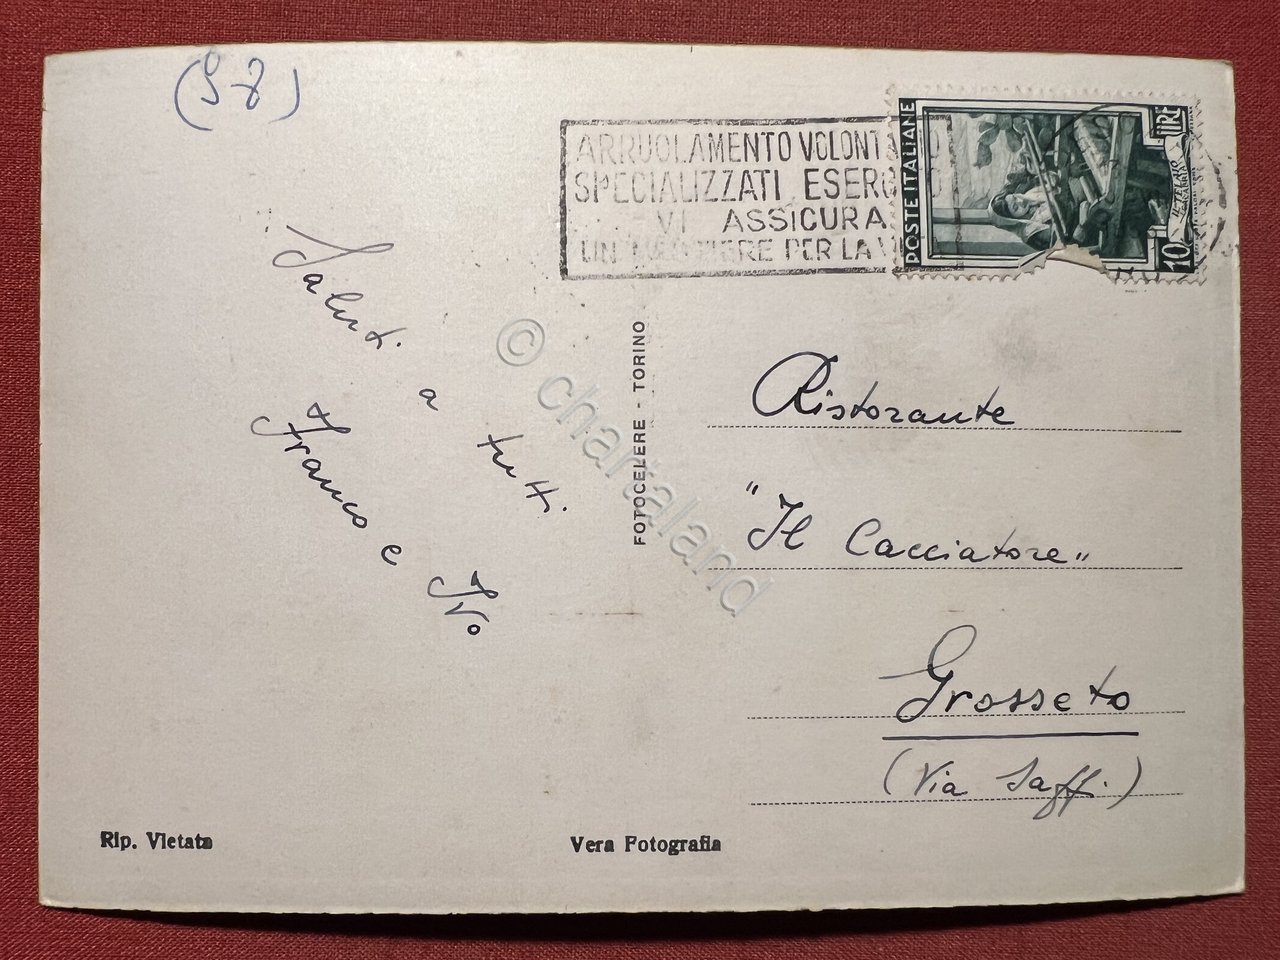 (58)
ARRUOLAMENTO VOLONT
SPECIALIZZATI ESERC
VI ASSICURA
UN MESTIERE PER LA VI
POSTE ITALIANE
10 LIRE
IL TELAIO
Saluti
a
tutti
Franco e Ivo
FOTOCELERE - TORINO
© chartaland
Ristorante
"Il Cacciatore"
Grosseto
(Via Saffi)
Rip. Vietata
Vera Fotografia